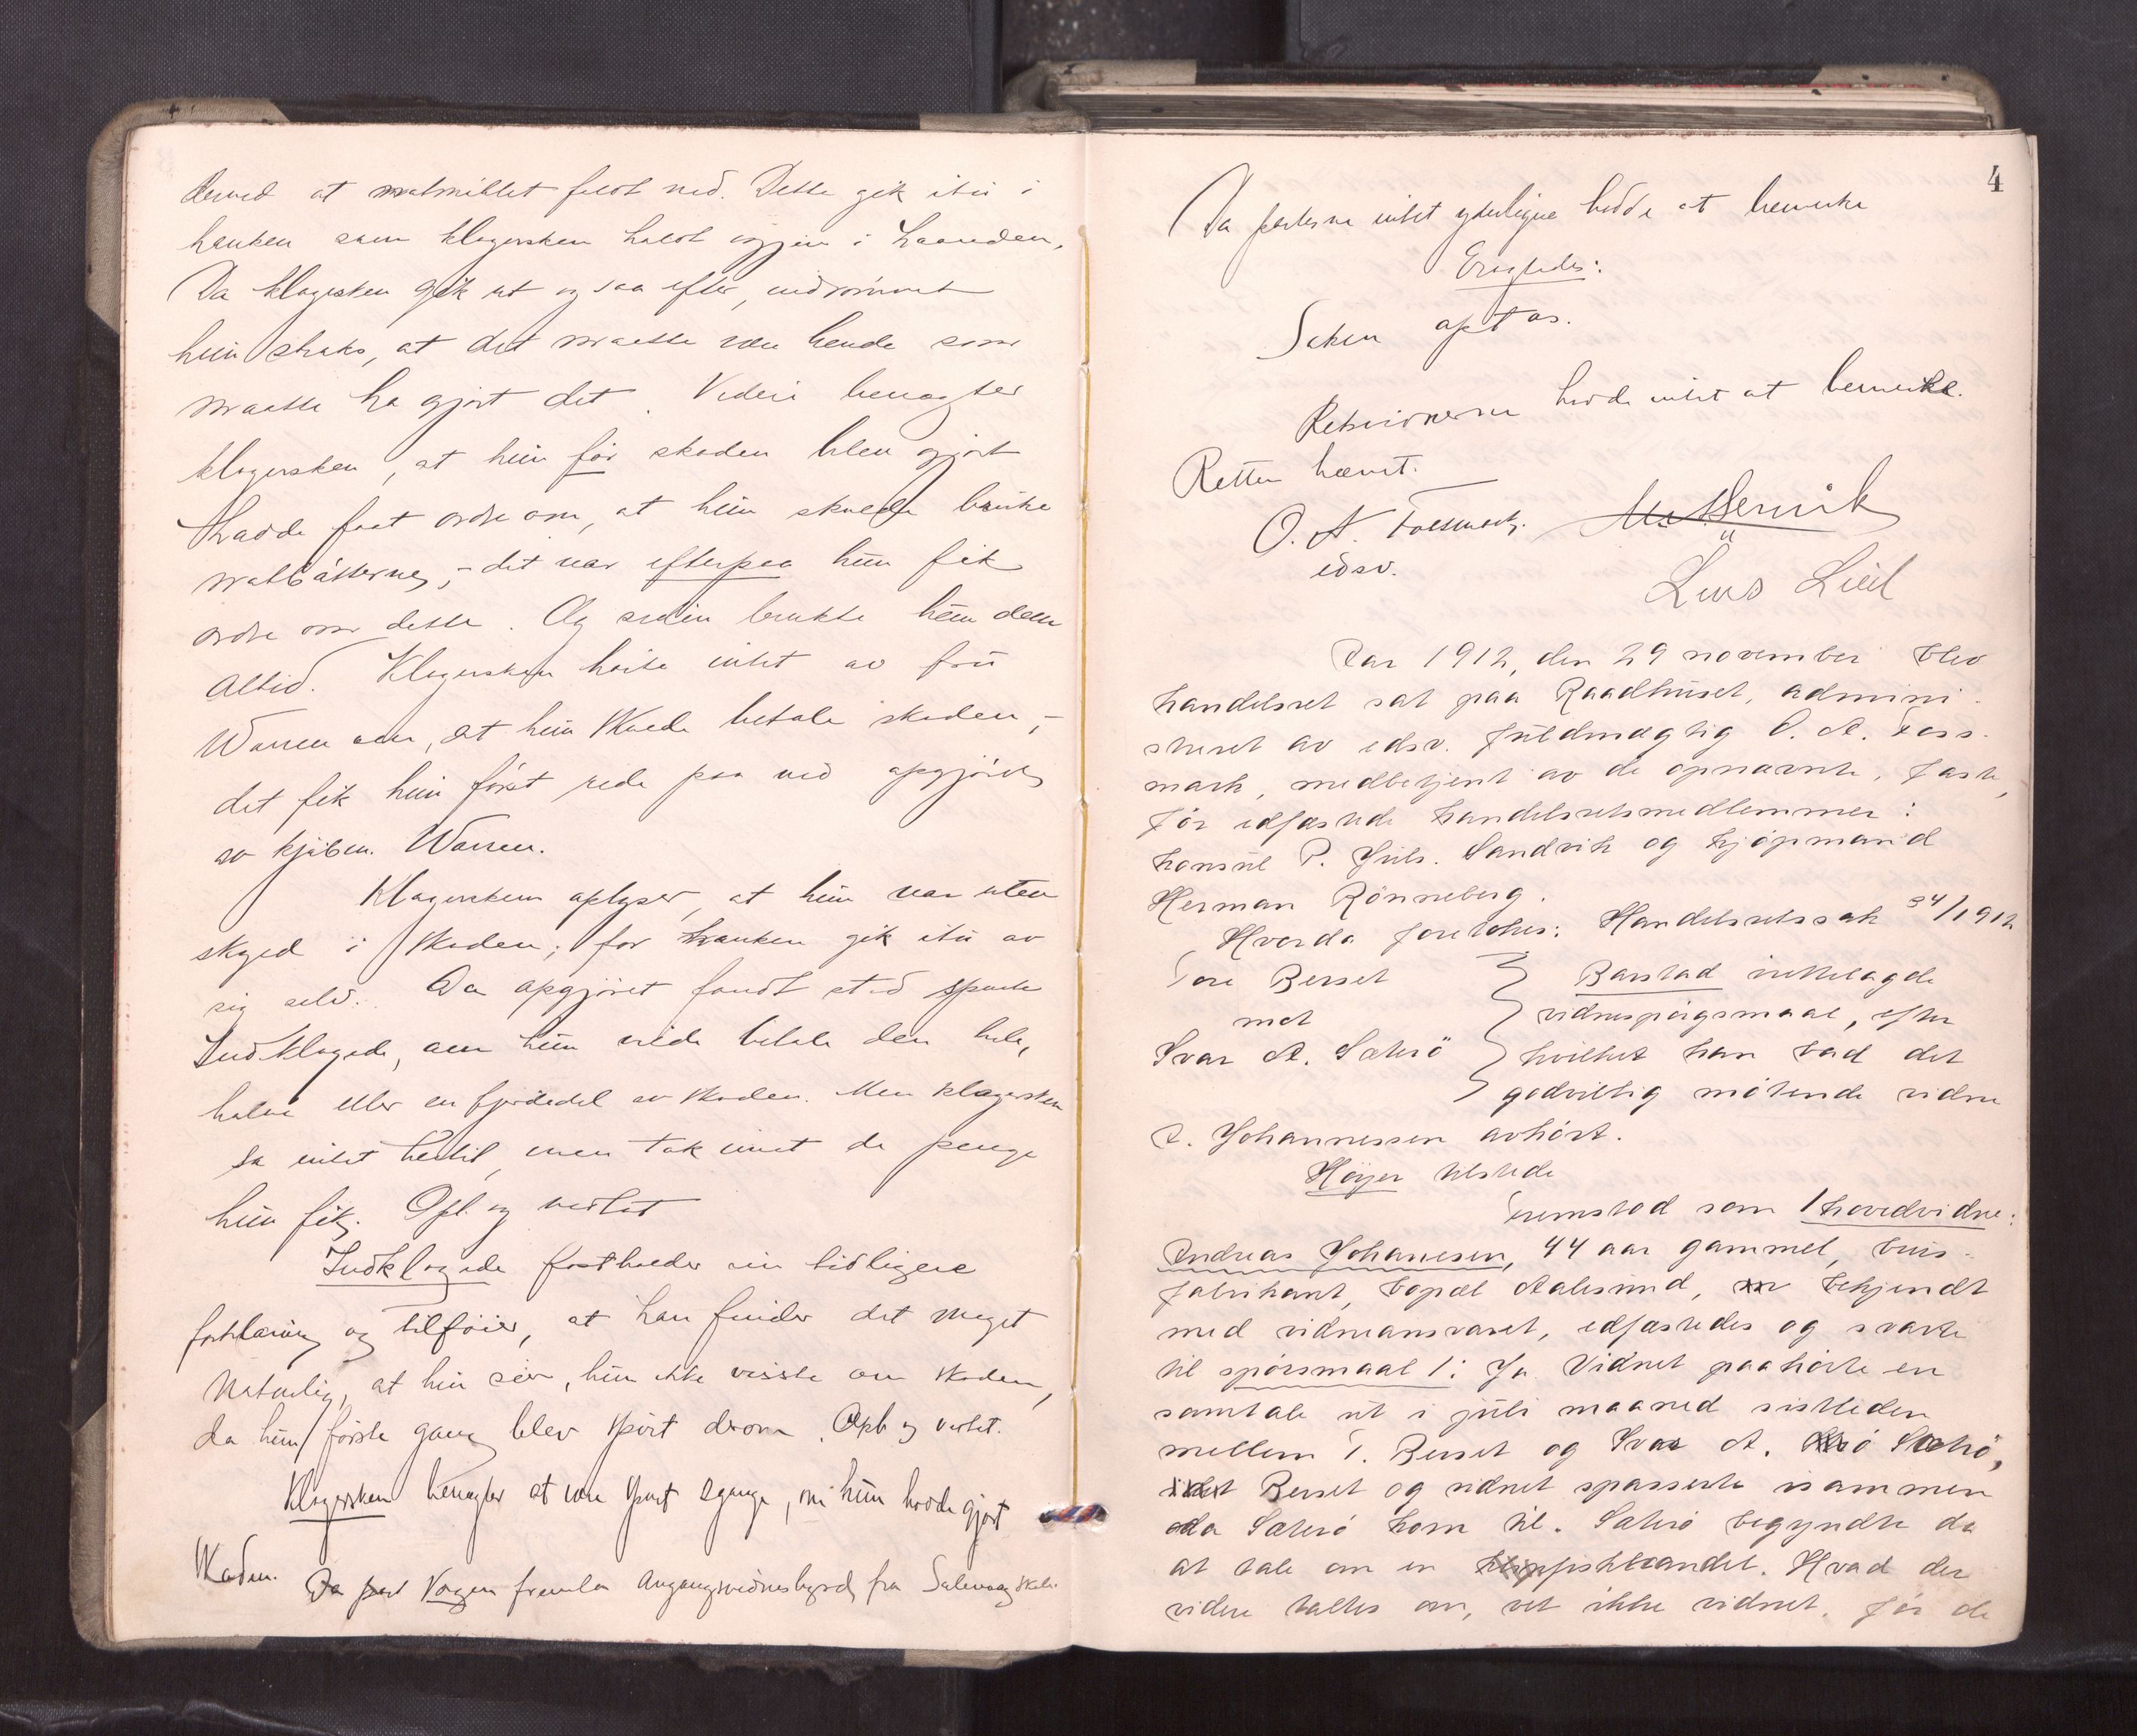 derved at matmillet faldt ned. Dette gik itu i
hanken som klagersken holdt igjen i haanden.
Da klagersken gik ut og saa efter, indrömmet
hun straks, at det maatte være hende som
maatte ha gjort det. Videre benegter
klagersken, at hun för skaden blev gjort
hadde faat ordre om, at hun skulde bruke
; det var efterpaa hun fik
ordre om dette. Og siden brukte hun dem
altid. Klagersken hörte intet av fru
Warren om, at hun skulde betale skaden,-
det fik hun först rede paa ved opgjöret
av kjöbm. Warren.
Klagersken oplyser, at hun var uten
skyld i skaden; for hanken gik itu av
sig selv. Da opgjöret fandt sted spurte
Indklagede, om hun vilde betale den hele,
halve eller en fjerdedel av skaden. Men klagersken
sa intet hertil, men tok imot de penge
hun fik. Opl. og vedtat
Indklagede fastholder sin tidligere
forklaring og tilföier, at han finder det meget
naturlig, at hun sier, hun ikke visste om skaden,
da hun förste gang blev spurt derom. Opl. og vedtat.
Klagersken benegter at være spurt 2 gange, om hun hadde gjort
skaden.
Da part Vaagen fremla
4
Da parterne intet yderligere hadde at bemerke
Eragtedes:
Saken optas.
Retsvidnerne hadde intet at bemerke.
Retten hævet.
O. A. Fossmark.
edsv.
Lars Lied
Aar 1912, den 29 november blev
handelsret sat paa Raadhuset, admini-
streret av edsv. fuldmægtig O. A. Foss-
mark, medbetjent av de opnævnte, faste,
för edfæstede handelsretsmedlemmer:
konsul P. Juls. Sandvik og kjöpmand
Herman Rönneberg.
Hvorda foretokes: Handelsretssak 34/1912
Tore Berset
mot
Svar A. Sætrö
Barstad irettelagde
vidnespörgsmaal, efter
hvilket han bad det
godvillig mötende vidne
A. Johannessen avhört.
Höyer tilstede
Fremstod som 1 hovedvidne:
Andreas Johanesen, 44 aar gammel, brus-
fabrikant, bopæl Aalesund, bekjendt
med vidneansvaret, edfæstedes og svarte
til spörsmaal 1: Ja Vidnet paahörte en
samtale ut i juli maaned sistleden
mellem T. Berset og Svar A. Sætrö,
Berset og vidnet spasserte isammen
da Sætrö kom til. Sætrö begyndte da
at tale om en klipfiskhandel. Hvad der
videre taltes om, vet ikke vidnet, för de